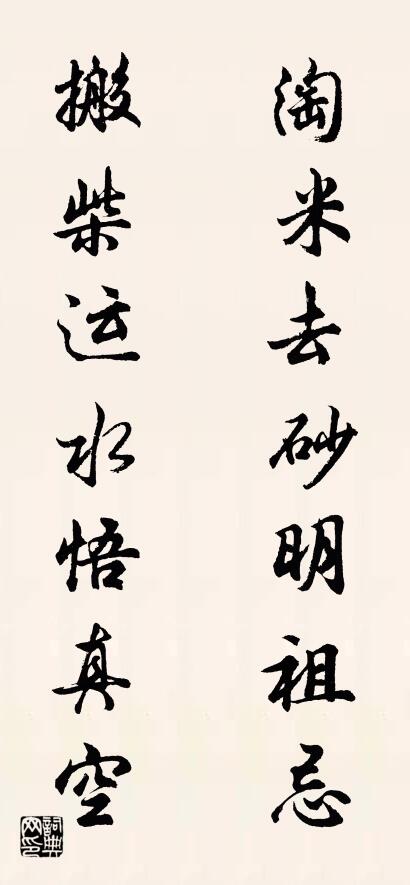 淘米去砂明祖忌
搬柴运水悟真空
詞典网印